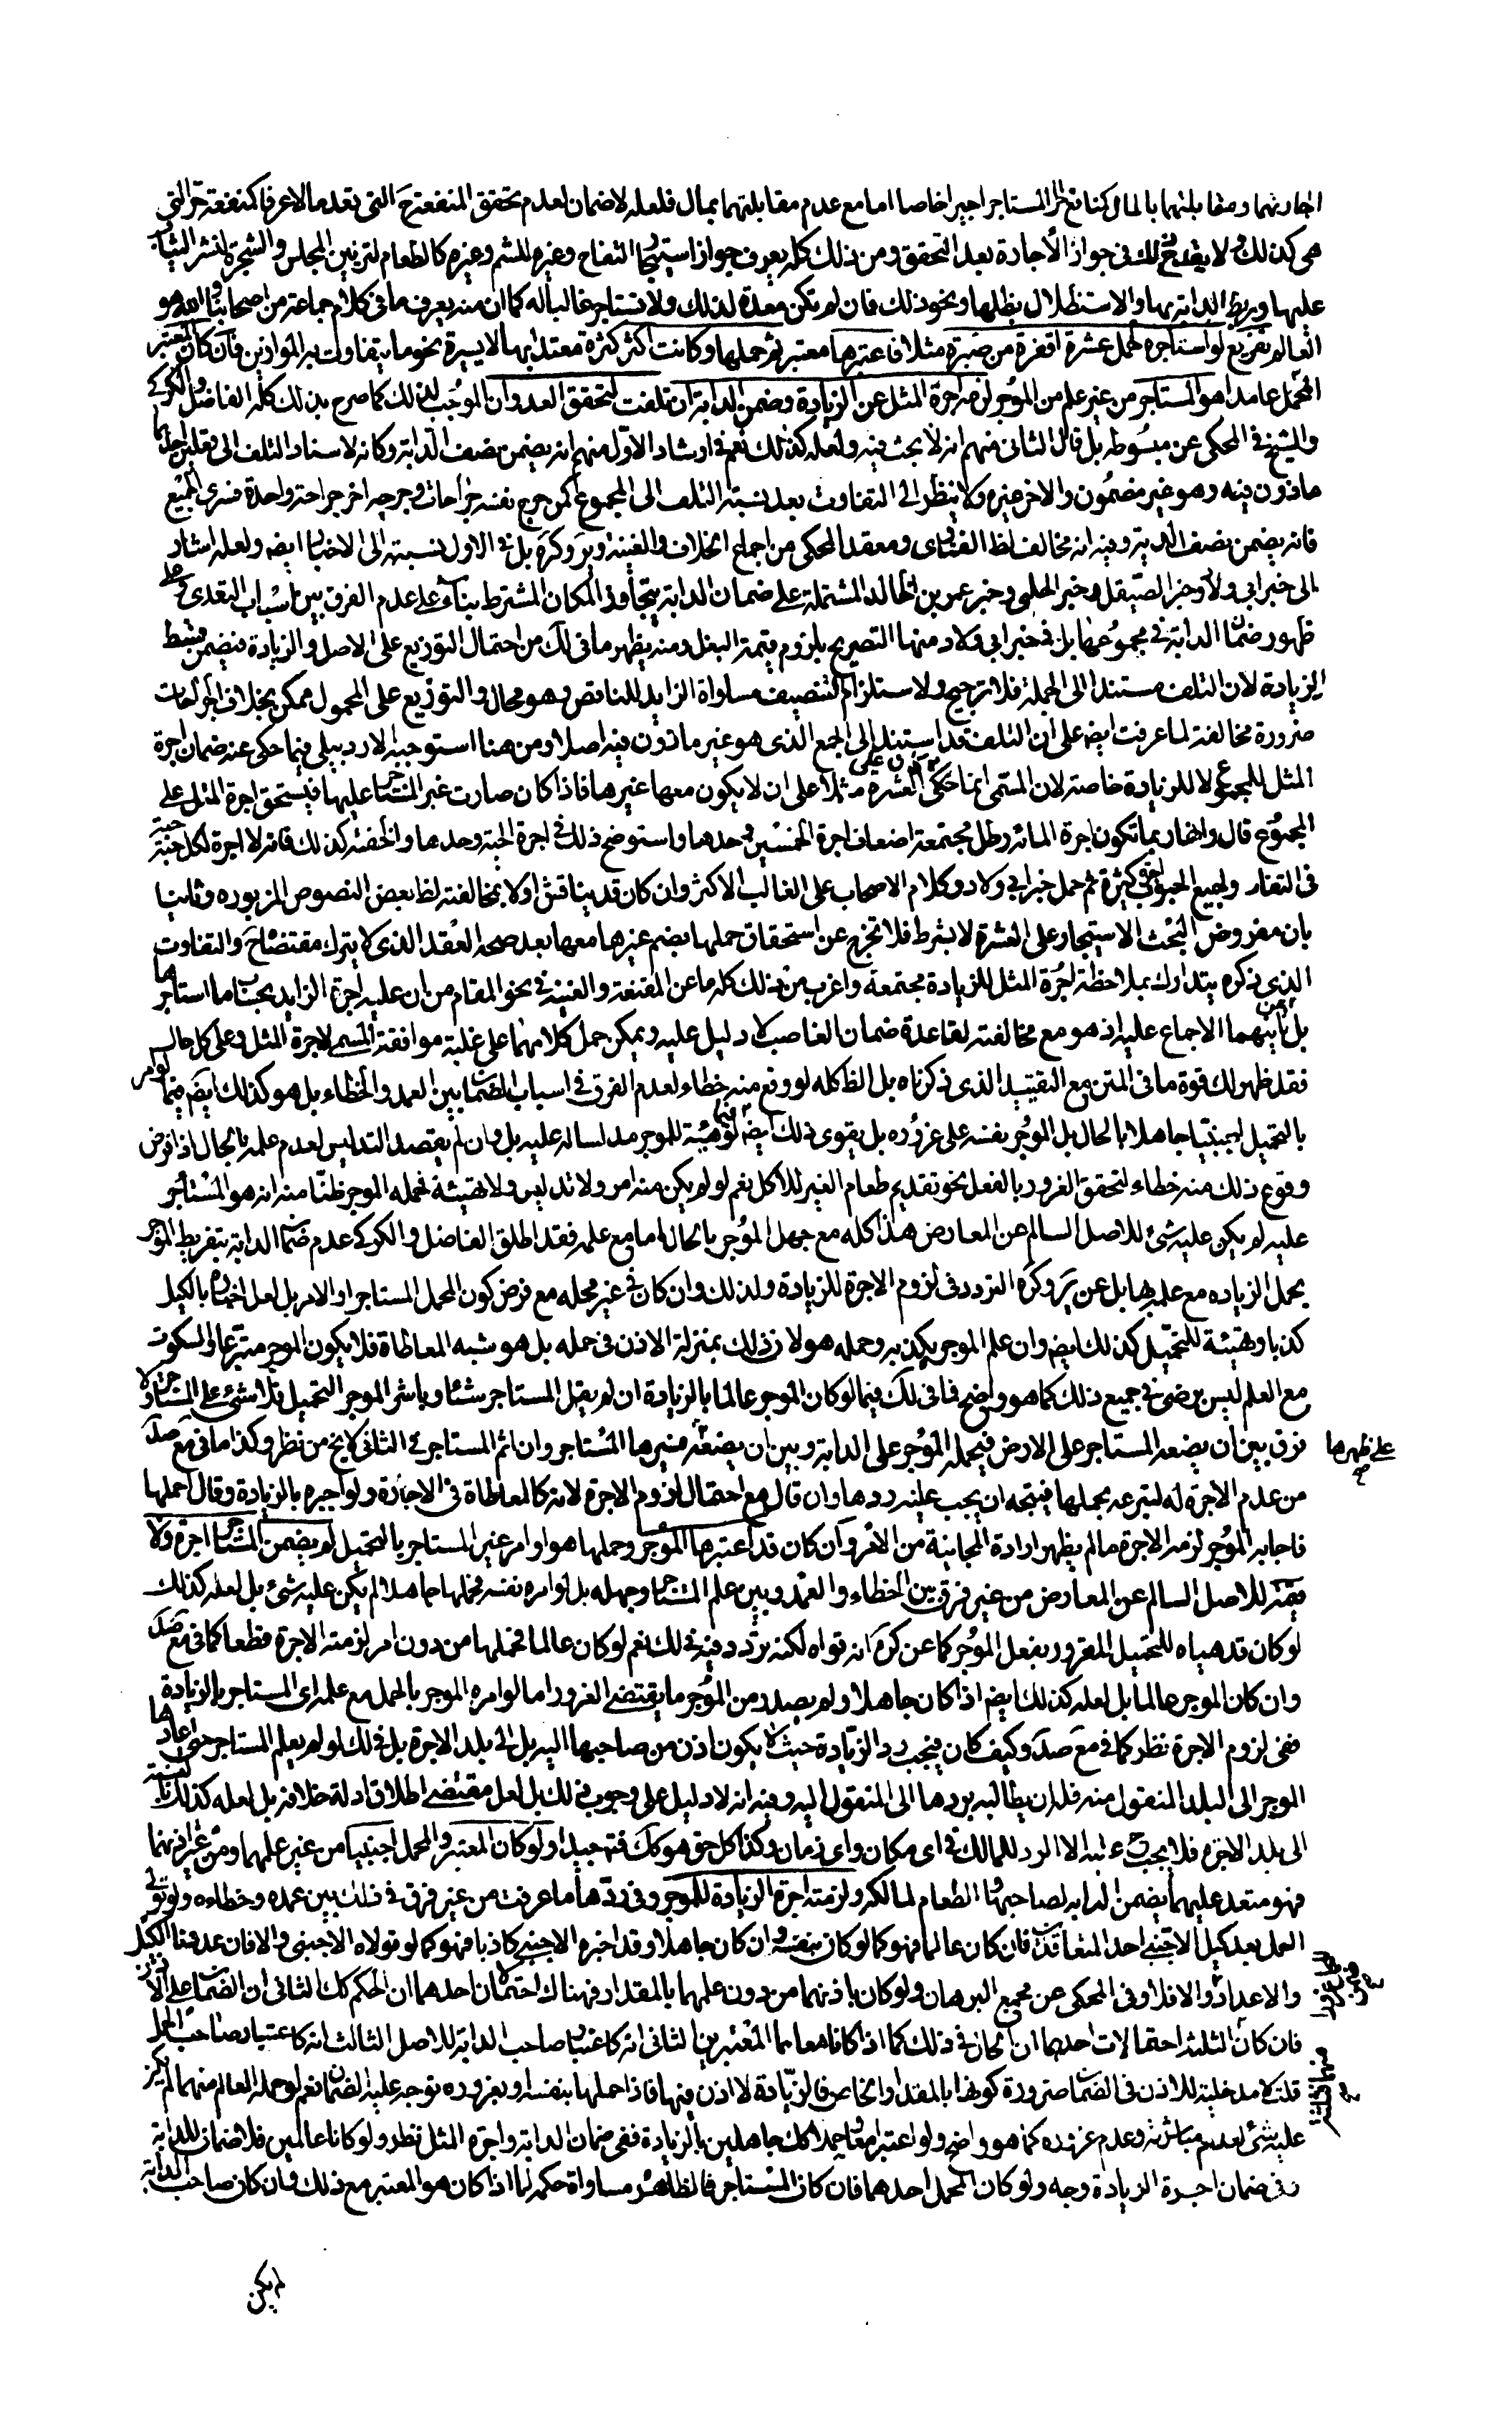 اجارتهما ومقابلتهما بالمال كمنافع الحر المستاجر اجيرا خاصا اما مع عدم مقابلتهما بمال فلعله لا ضمان لعدم تحقق المنفعة ح التى تعد مالا عرفا كمنفعة حر التى
هى كذلك ولا يقدح ذلك فى جواز الاجارة بعد التحقق ومن ذلك كله يعرف جواز استيجار التفاح وغيره للشم وغيره كالطعام لتزيين المجلس والشجرة لنشر الثياب
عليها وربط الدابة بها والاستظلال بظلها ونحو ذلك فان لم تكن معدة لذلك ولا تستاجر غالبا له كما ان منه يعرف ما فى كلام جماعة من اصحابنا والله هو
العالم تفريع لو استاجره لحمل عشرة اقفزة من صبرة مثلا فاعتبرها معتبر ثم حملها وكانت اكثر كثرة معتدا بها لا يسيرة نحو ما يتفاوت به الموازين فان كان المعتبر
المحمل عامدا هو المستاجر من غير علم من الموجر لزمه اجرة المثل عن الزيادة وضمن الدابة ان تلفت لتحقق العدوان الموجب لذلك كما صرح بذلك كله الفاضل والكركى
والشيخ فى المحكى عن مبسوطه بل قال الثانى منهم انه لا بحث فيه ولعله كذلك نعم فى ارشاد الاول منهم انه يضمن نصف الدابة وكانه لاستناد التلف الى فعلين احدهما
ماذون فيه وهو غير مضمون والاخر غيره ولا ينظر الى التفاوت بعد نسبة التلف الى المجموع كمن جرح نفسه جراحات وجرحه اخر جراحة واحدة فسرى الجميع
فانه يضمن نصف الدية وفيه انه مخالف لظ الفتاوى ومعقد المحكى من اجماع الخلاف والغنية وير وكره بل فى الاول نسبته الى الاخبار ايضه ولعله اشار
الى خبر ابى ولاد وخبر الصيقل وخبر الحلبى وخبر عمرو بن خالد المشتملة على ضمان الدابة بتجاوز المكان المشترط بناء على عدم الفرق بين اسباب التعدى على
ظهور ضمان الدابة فى مجموعها بل فى خبر ابى ولاد منها التصريح بلزوم قيمة البغل ومنه يظهر ما فى لك من احتمال التوزيع على الاصل والزيادة فيضمن بقسط
الزيادة لان التلف مستند الى الجملة فلا ترجيح ولاستلزام التنصيف مساواة الزايد للناقص وهو محال والتوزيع على المحمول ممكن بخلاف الجراحات
ضرورة مخالفته لما عرفت ايضه على ان التلف قد استند الى الجمع الذى هو غير ماذون فيه اصلا ومن هنا استوجبه الاردبيلى فيما حكى عنه ضمان اجرة
المثل للمجموع لا للزيادة خاصة لان المسمى انما يكون على العشرة مثلا على ان لا يكون معها غيرها فاذا كان صارت غير المستاجر عليها فيستحق اجرة المثل على
المجموع قال وانها ربما تكون اجرة المائة رطل مجتمعة اضعاف اجرة الخمسين وحدها واستوضح ذلك فى اجرة الحبة وحدها والحفنة كذلك فانه لا اجرة لكل حبة حبة
فى التغار ولجميع الحبوب اجرة كثيرة ثم حمل خبر ابى ولاد وكلام الاصحاب على الغالب الاكثر وان كان قد يناقش اولا بمخالفته لظ بعض النصوص المزبوره وثانيا
بان مفروض البحث الاستيجار على العشرة لا بشرط فلا تخرج عن استحقاق حملها بضم غيرها معها بعد صحة العقد الذى لا يترك مقتضاه ح والتفاوت
الذى ذكره يتدارك بملاحظة اجرة المثل للزيادة مجتمعة واغرب من ذلك كله ما عن المقنعة والغنية فى نحو المقام من ان عليه اجرة الزايد بحساب ما استاجرها
بل عن ثانيهما الاجماع عليه اذ هو مع مخالفته لقاعدة ضمان الغاصب لا دليل عليه ويمكن حمل كلامهما على غلبة موافقة المسمى لاجرة المثل وعلى كل حال
فقد ظهر لك قوة ما فى المتن مع التقييد الذى ذكرناه بل الظ كله لو وقع منه خطاء لعدم الفرق فى اسباب الضمان بين العمد والخطاء بل هو كذلك ايضه فيما لو امر
بالتحميل اجنبيا جاهلا بالحال بل الموجر نفسه على غروره بل يقوى ذلك ايضه فيما لو هيئه للموجر مدلسا له عليه بل وان لم يقصد التدليس لعدم علمه بالحال اذا فرض
وقوع ذلك منه خطاء لتحقق الغرور بالفعل نحو تقديم طعام الغير للاكل نعم لو لم يكن منه امر ولا تدليس ولا تهيئة فحمله الموجر ظنا منه انه هو المستاجر
عليه لم يكن عليه شئ للاصل السالم عن المعارض هذا كله مع جهل الموجر بالحال اما مع علمه فقد اطلق الفاضل والكركى عدم ضمان الدابة بتفريط الموجر
بحمل الزياده مع علمه بها بل عن ير وكره التردد فى لزوم الاجرة للزيادة ولذلك وان كان فى غير محله مع فرض كون المحمل المستاجر او الامر بل لعل اخباره بالكيل
كذبا وتهيئة للتحميل كذلك ايضه وان علم الموجر بكذبه وحمله هو لان ذلك بمنزلة الاذن فى حمله بل هو شبه المعاطاة فلا يكون الموجر متبرعا والسكوت
مع العلم ليس برضى فى جميع ذلك كما هو واضح فما فى لك فيما لو كان الموجر عالما بالزيادة ان لم يقل المستاجر شئا وباشر الموجر التحميل فلا شئ على المستاجر ولا
فرق بين ان يضعه المستاجر على الارض فيحمله الموجر على الدابة وبين ان يضعه على ظهرها فيسيرها المستاجر وان اثم المستاجر فى الثانى لا يخ من نظر وكذا ما فى مع صد
من عدم الاجرة له لتبرعه بحملها فيتجه ان يجب عليه ردها وان قال مع احتمال لزوم الاجرة لانه كالمعاطاة فى الاجارة ولو اخبره بالزيادة وقال احملها
فاجابه الموجر لزمه الاجرة ما لم يظهر ارادة المجانية من الامر وان كان قد اعتبرها الموجر وحملها هو او امر غير المستاجر بالتحميل لم يضمن المستاجر اجرة ولا
قيمة للاصل السالم عن المعارض من غير فرق بين الخطاء والعمد وبين علم المستاجر وجهله بل لو امره نفسه فحملها جاهلا لم يكن عليه شئ بل لعله كذلك
لو كان قد هياه للتحميل المغرور بفعل الموجر كما عن كره انه قواه لكنه تردد فيه فى لك نعم لو كان عالما فحملها من دون امر لزمته الاجرة قطعا كما فى مع صد
وان كان الموجر عالما بل لعله كذلك ايضه اذا كان جاهلا ولم يصدر من الموجر ما يقتضى الغرور اما لو امره الموجر بالحمل مع علمه اى المستاجر بالزيادة
ففى لزوم الاجرة نظر كما فى مع صد وكيف كان فيجب رد الزيادة حيث لا يكون اذن من صاحبها اليه بل الى بلد الاجرة بل فى لك لو لم يعلم المستاجر حتى اعادها
الموجر الى البلد المنقول منه فله ان يطالبه بردها الى المنقول اليه وفيه انه لا دليل على وجوب ذلك بل لعل مقتضى اطلاق ادلة خلافه بل لعله كذلك بالنسبة
الى بلد الاجرة فلا يجب ح عليه الا الرد للمالك فى اى مكان واى زمان وكذا كل حق هو كك فته جيدا ولو كان المعتبر والمحمل اجنبيا من غير علمهما ومن غير اذنهما
فهو متعد عليهما يضمن الدابه لصاحبها الطعام لمالكه ولزمته اجرة الزيادة للموجر وفى ردها ما عرفت من غير فرق فى ذلك بين عمده وخطاءه ولو تولى
الحمل بعد كيل الاجنبى احد المتعاقدين فان كان عالما فهو كما لو كان بنفسه وان كان جاهلا وقد اخبره الاجنبى كاذبا فهو كما لو تولاه الاجنبى والا فان عد هنا الكيل
والاعداد والا فلا وفى المحكى عن مجمع البرهان ولو كان باذنهما من دون علمهما بالمقدار فهناك احتمالان احدهما ان الحكم كك الثانى ان الضمان على الاذن
فان كان الثلثة احتمالات احدها ان الحال فى ذلك كما اذا كانا معا هما المعتبرين الثانى انه كاعتبار صاحب الدابة للاصل الثالث انه كاعتبار صاحب الحمل
قلت لا مدخلية للاذن فى الضمان ضرورة كونها بالمقدار الخاص فالزيادة لا اذن فيها فاذا حملها بنفسه او بغروره توجه عليه الضمان نعم لو حمله العالم منهما لم يكن
عليه شئ لعدم مباشرته وعدم غروره كما هو واضح ولو اعتبرا معا وحملا كك جاهلين بالزيادة ففى ضمان الدابة واجرة المثل نظر ولو كانا عالمين فلا ضمان للدابة
وفى ضمان اجرة الزيادة وجه ولو كان المحمل احدهما فان كان المستاجر فالظاهر مساواة حكمه لما اذا كان هو المعتبر مع ذلك وان كان صاحب الدابة
لم يكن